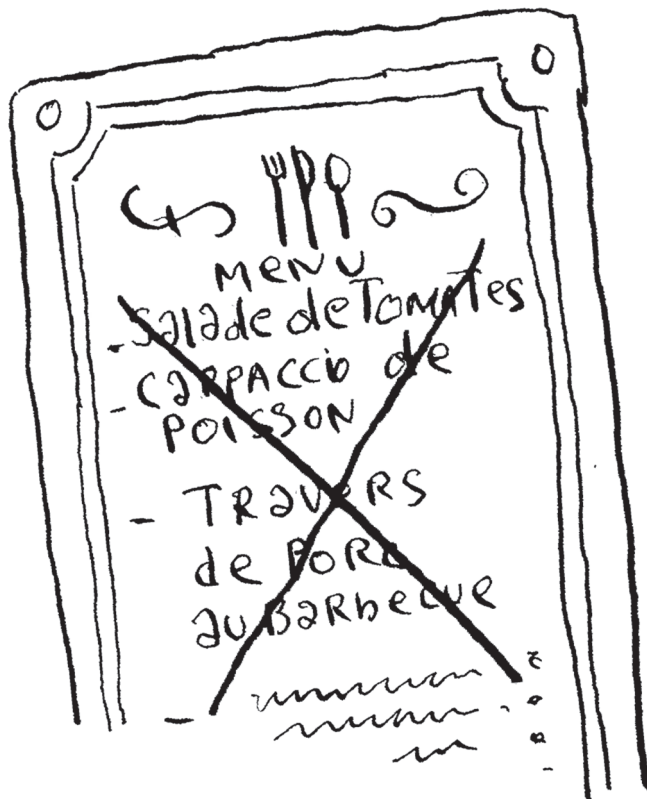 MENU
- Salade de Tomates
- CARPACCIO de
POISSON
- TRAVERS
de PORC
au BaRbecue
-